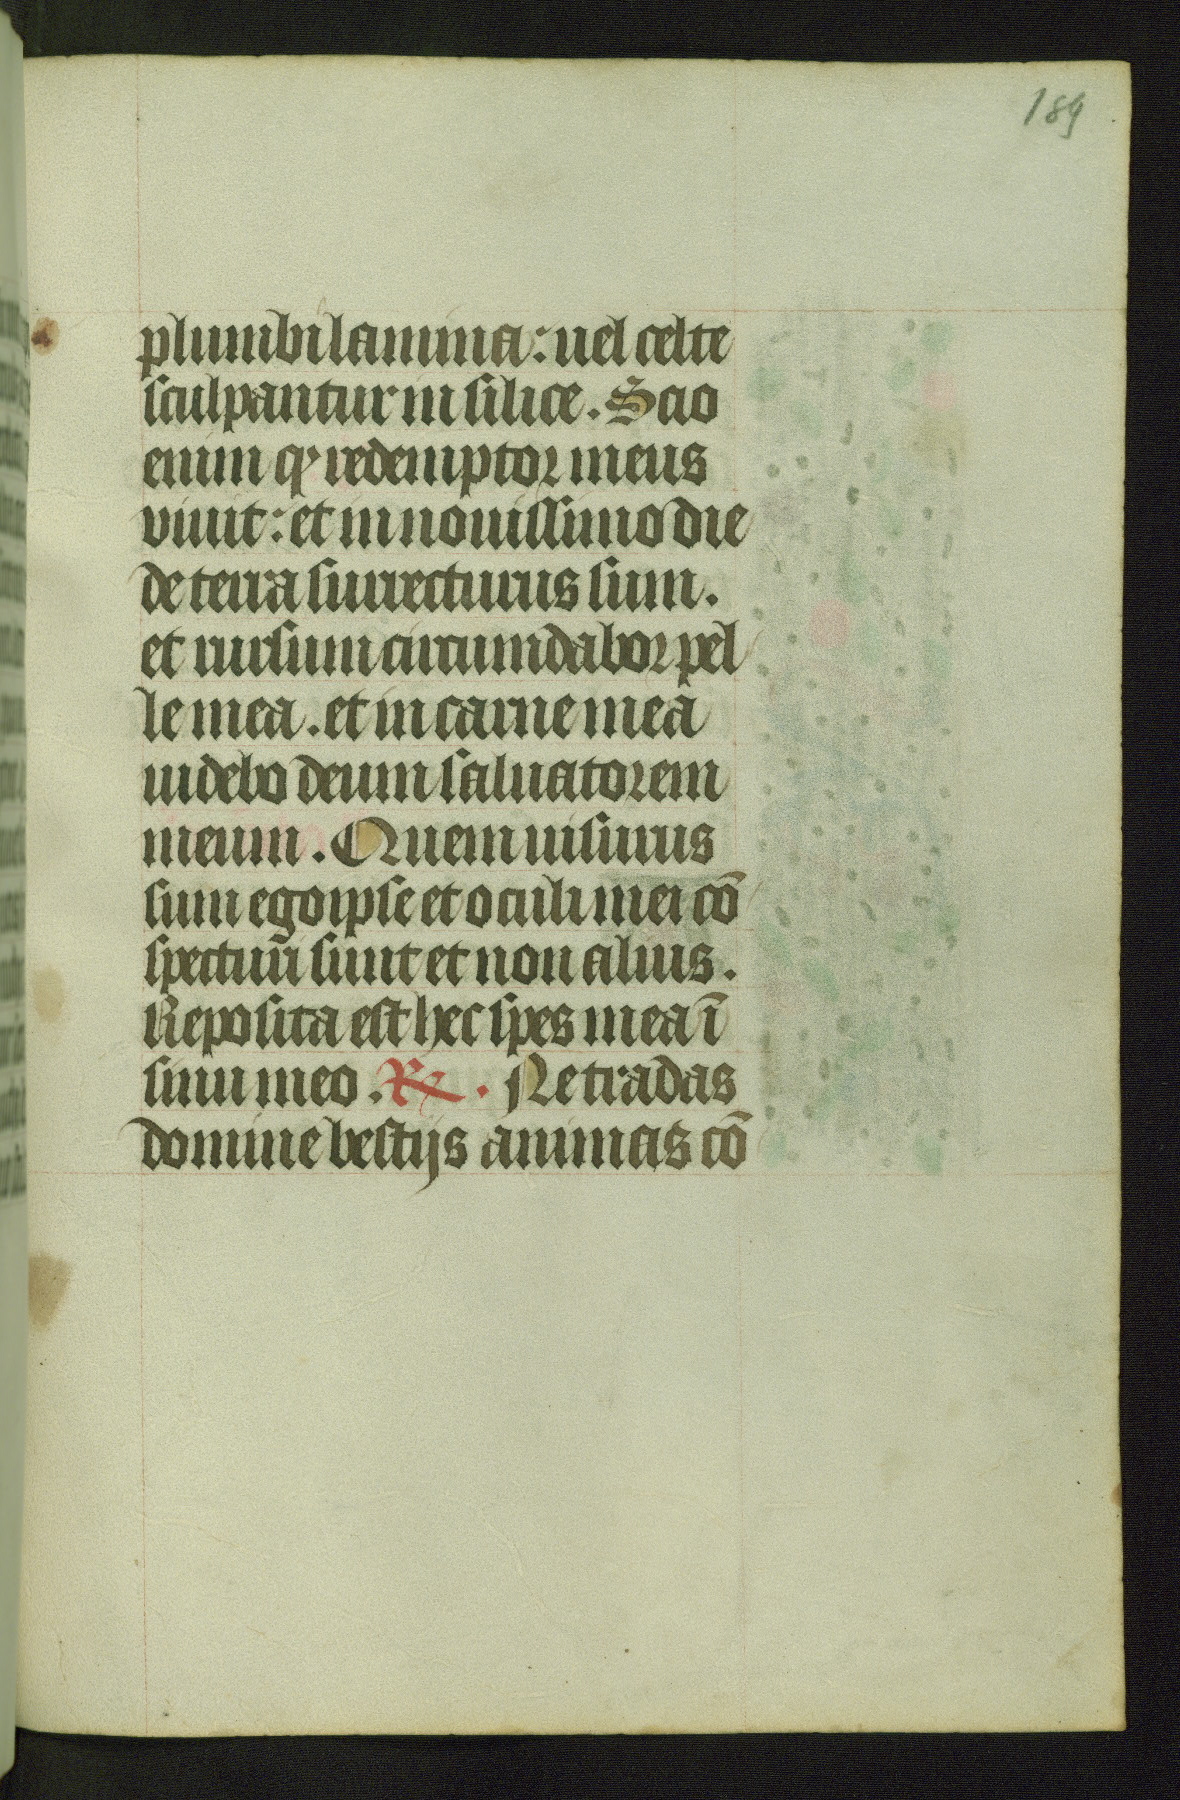 189
plumbi lamina: uel celte
sculpantur in silice. Scio
enim qꝫ redemptor meus
viuit: et in nouissimo die
de terra surrecturus sum.
et rursum circumdabor pel
le mea. et in carne mea
uidebo deum saluatorem
meum. Quem uisurus
sum ego ipse et oculi mei cō
specturi sunt et non alius.
Reposita est hec spes mea ī
sinu meo. ℞. Ne tradas
domine bestijs animas cō